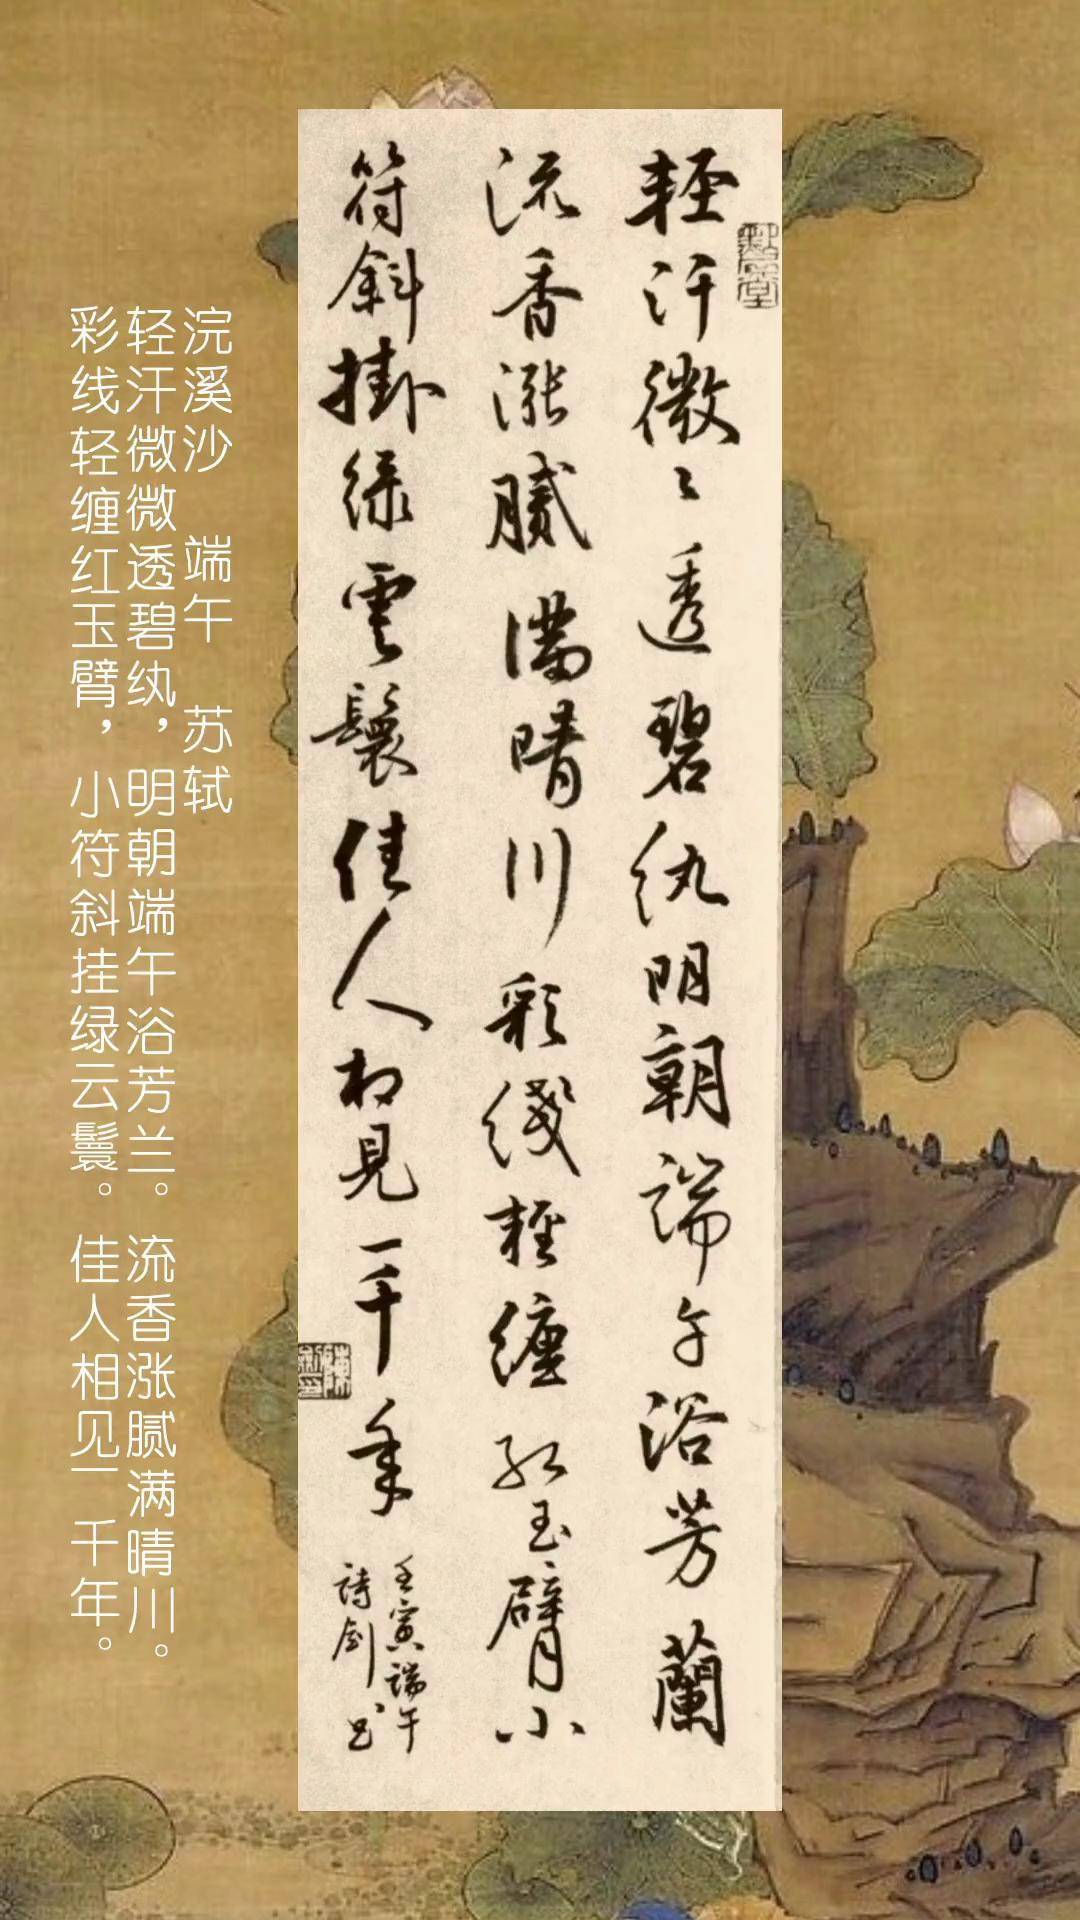 輕汗微〻透碧紈明朝端午浴芳蘭
流香漲膩滿晴川彩綫輕纏紅玉臂小
符斜掛綠雲鬟佳人相見一千年
壬寅端午
詩剑书
浣溪沙 端午 苏轼
轻汗微微透碧纨，明朝端午浴芳兰。流香涨腻满晴川。
彩线轻缠红玉臂，小符斜挂绿云鬟。佳人相见一千年。